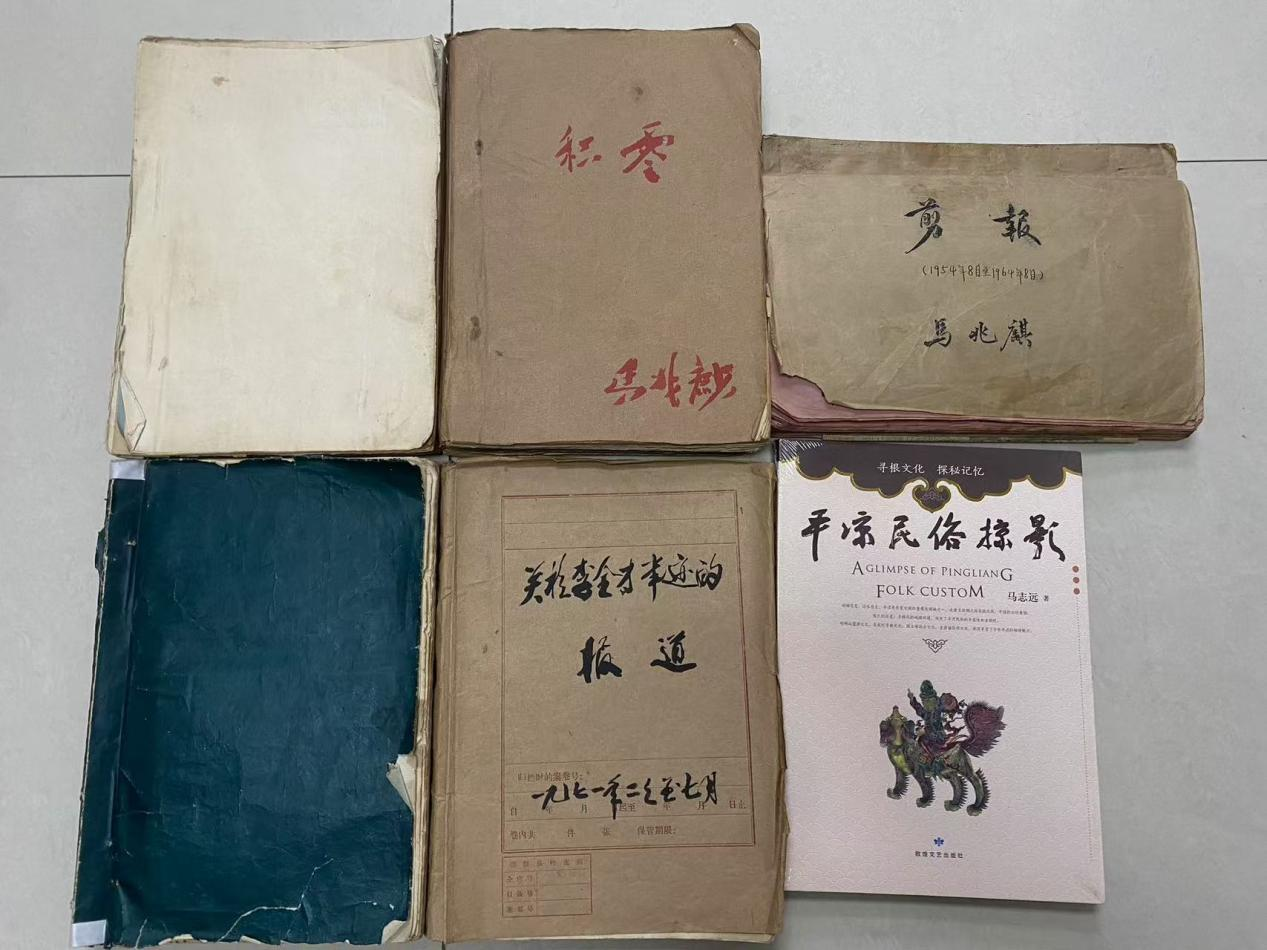 积零
马兆麒
剪報
(1954年8月至1964年8月)
馬兆麒
关于李全才事迹的
报道
归档时的案卷号：
一九七一年二月至七月
自 年 月 起至 年 月 日止
卷内共 件 张 保管期限：
全宗号
目录号
案卷号
寻根文化 探秘记忆
平凉民俗掠影
A GLIMPSE OF PINGLIANG
FOLK CUSTOM
马志远 著
敦煌文艺出版社